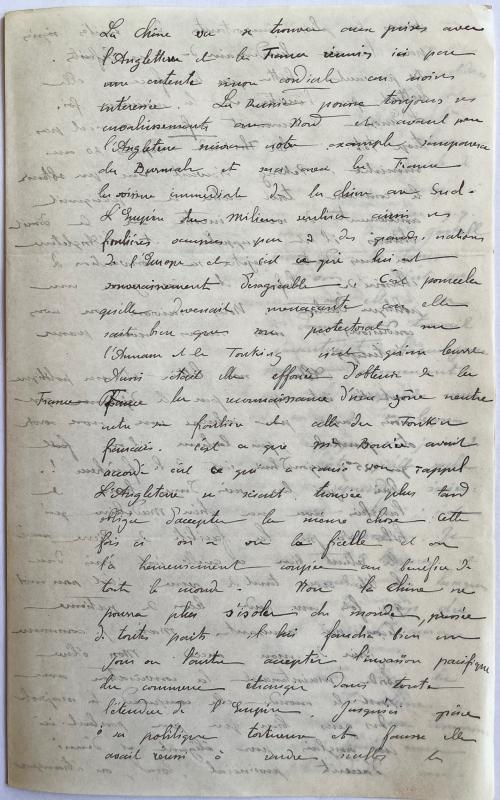 La Chine va se trouver aux prises avec
l'Angleterre et la France réunies ici par
une entente sinon cordiale au moins
intéressée. La Russie pousse toujours ses
envahissements au Nord et avant peu
l'Angleterre suivant notre exemple s'emparera
du Burmah et sera avec la France
la voisine immédiate de la Chine au Sud.
L'Empire du Milieu verrait ainsi ses
frontières occupées par 3 des grandes nations
de l'Europe et c'est ce qui lui est
souverainement désagréable. C'est pour cela
qu'elle devenait menaçante car elle
sait bien que son protectorat sur
l'Annam et le Tonking n'est qu'un leurre
Aussi s'était elle efforcée d'obtenir de la
France la reconnaissance d'une zône neutre
entre sa frontière et celle du Tonkin
français. C'est ce que Mr Bourée avait
accordé c'est ce qui a causé son rappel
L'Angleterre se serait trouvée plus tard
obligée d'accepter la même chose cette
fois ci on a vu la ficelle et on
l'a heureusement coupée au bénéfice de
tout le monde. Non la Chine ne
pourra plus s'isoler du monde, pressée
de toutes parts il lui faudra bien un
jour ou l'autre accepter l'invasion pacifique
du commerce étranger dans toute
l'étendue de l'Empire. Jusqu'ici grâce
à sa politique tortueuse et fausse elle
avait réussi à rendre nulles la